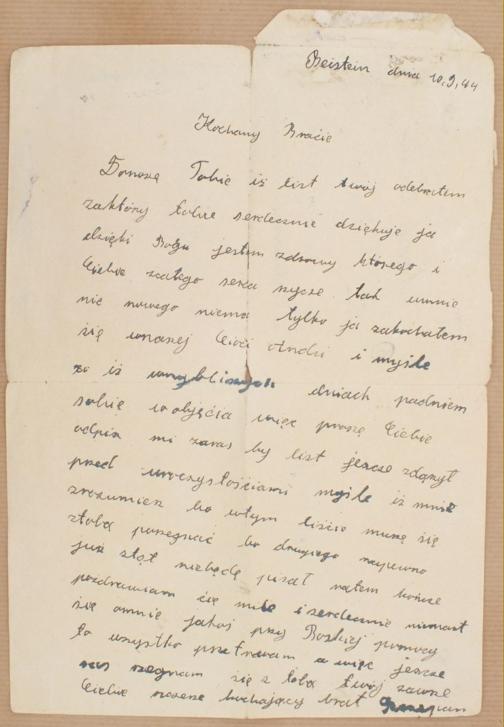 Beistein dnia 10.9.44
Kochany Bracie
Donoszę Tobie iż list twój odebrałem
zaktóry tobie serdecznie dziękuje ja
dzięki Bogu jestem zdrowy którego i
Ciebie zcałego serca rzycze tak umnie
nic nowego niema tylko ja zakochałem
się wnaszej Cioci Andzi i myśle
że iż wnajbliszych dniach padniem
sobie wobjęcia więc proszę Ciebie
odpisz mi zaras by list jescze zdążył
przed uroczystościami myśle iż mnie
zrozumiesz bo wtym liście muszę się
stobą porzegnać bo drugiego napewno
już stąt niebędę pisał natem kończe
pozdrawiam cię mile i serdecznie
się omnie jakoś przy Boskiej pomocy
to wszystko przetrwam a więc jescze
ras rzegnam się z tobą twój zawsze
Ciebie kochający brat